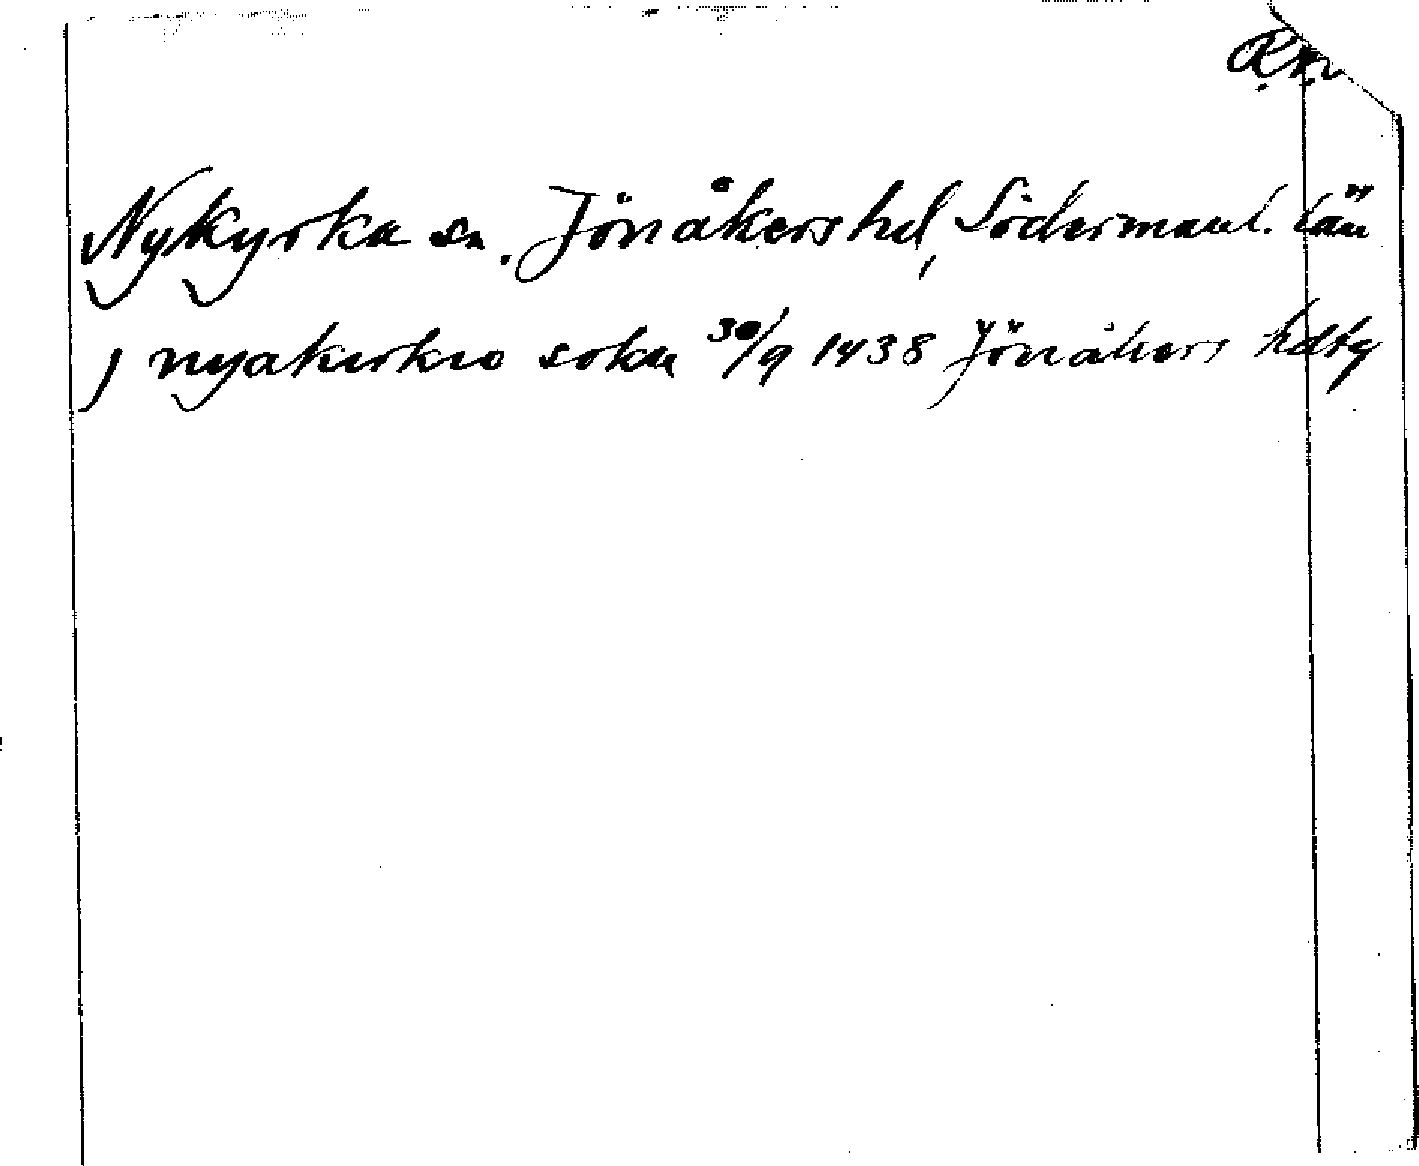 Nykyrka sn. Jönåkers hd, Södermanl. län
J nyakirkio sokn 30/9 1438 Jönåkers hdtg